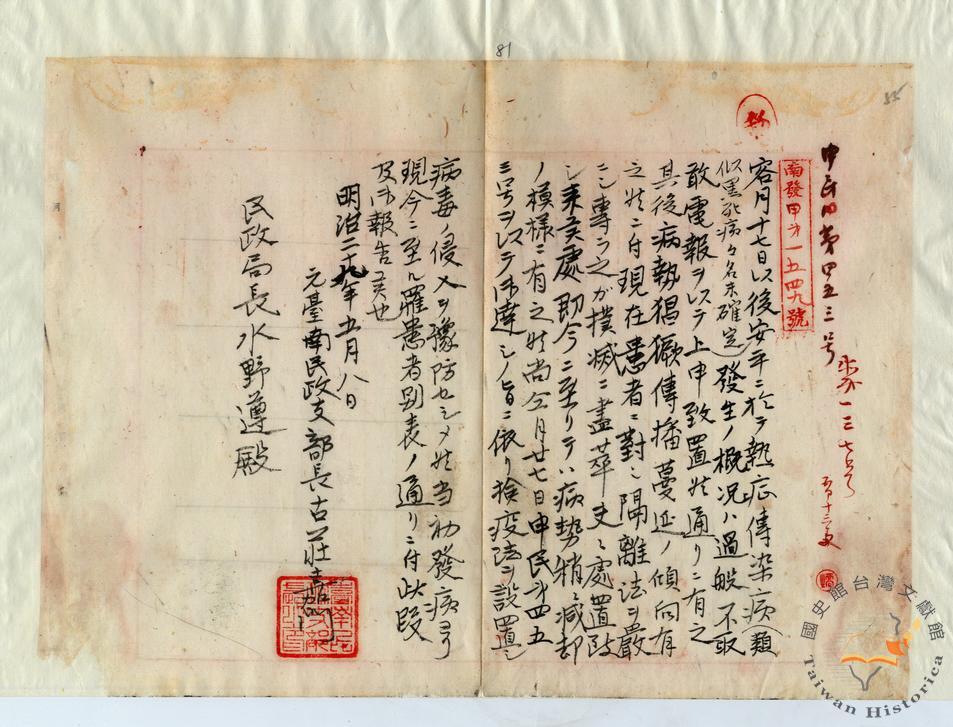 81
85
申民内第四五三号
南發甲第一五四九號
客月十七日以後安平ニ於テ熱症傳染病(類
似黒死病々名未確定)發生ノ概况ハ過般不取
敢電報ヲ以テ上申致置候通リニ有之
其後病勢猖獗傳播蔓延ノ傾向有
之候ニ付現在患者ニ對シ隔離法ヲ嚴
ニシ専ラ之が撲滅ニ盡萃史ニ處置致
シ来候處即今ニ至リテハ病勢稍々減却
ノ模様ニ有之候尚仝月廿七日申民第四五
三号ヲ以テ御達シノ旨ニ依リ検疫法ヲ設置シ
病毒ノ侵入ヲ豫防セシメ候当初發病ヨリ
現今ニ至ル罹患者別表ノ通リニ付此段
及御報告候也
明治二十九年五月八日
元臺南民政支部長古荘嘉門
民政局長水野遵殿
國史館台灣文獻館
Taiwan Historica